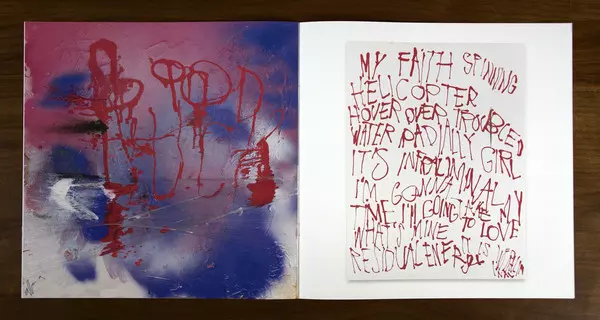 MY FAITH SPINNING
HELICOPTER
HOVER OVER TROUBLED
WATER RADIALLY GIRL
IT'S INFRALIMINAL MY
I'M GONNA TAKE ME
TIME I'M GOING TO LOVE
WHAT'S MINE
RESIDUAL ENERGY IS